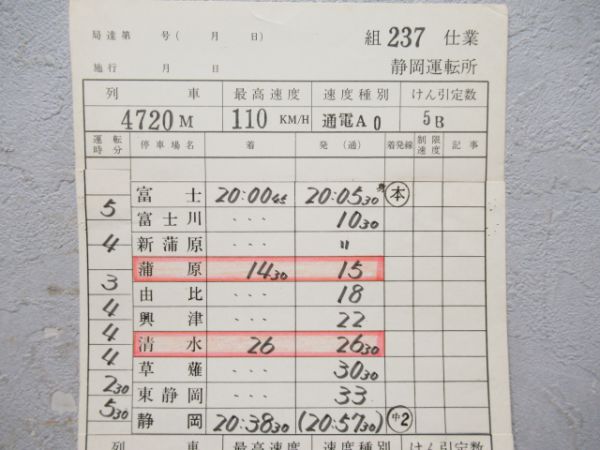 局達第 号( 月 日) 組 237 仕業
施行 月 日 静岡運転所
列車 最高速度 速度種別 けん引定数
4720M 110 KM/H 通電A0 5B
運転時分 停車場名 着 発(通) 着発線 制限速度 記事
富士 20:00 45 20:05 30 本
5 富士川 ・・・ 10 30
4 新蒲原 ・・・ 〃
蒲原 14 30 15
3 由比 ・・・ 18
4 興津 ・・・ 22
4 清水 26 26 30
4 草薙 ・・・ 30 30
2 30 東静岡 ・・・ 33
5 30 静岡 20:38 30 (20:57 30) 中2
列車 最高速度 速度種別 けん引定数